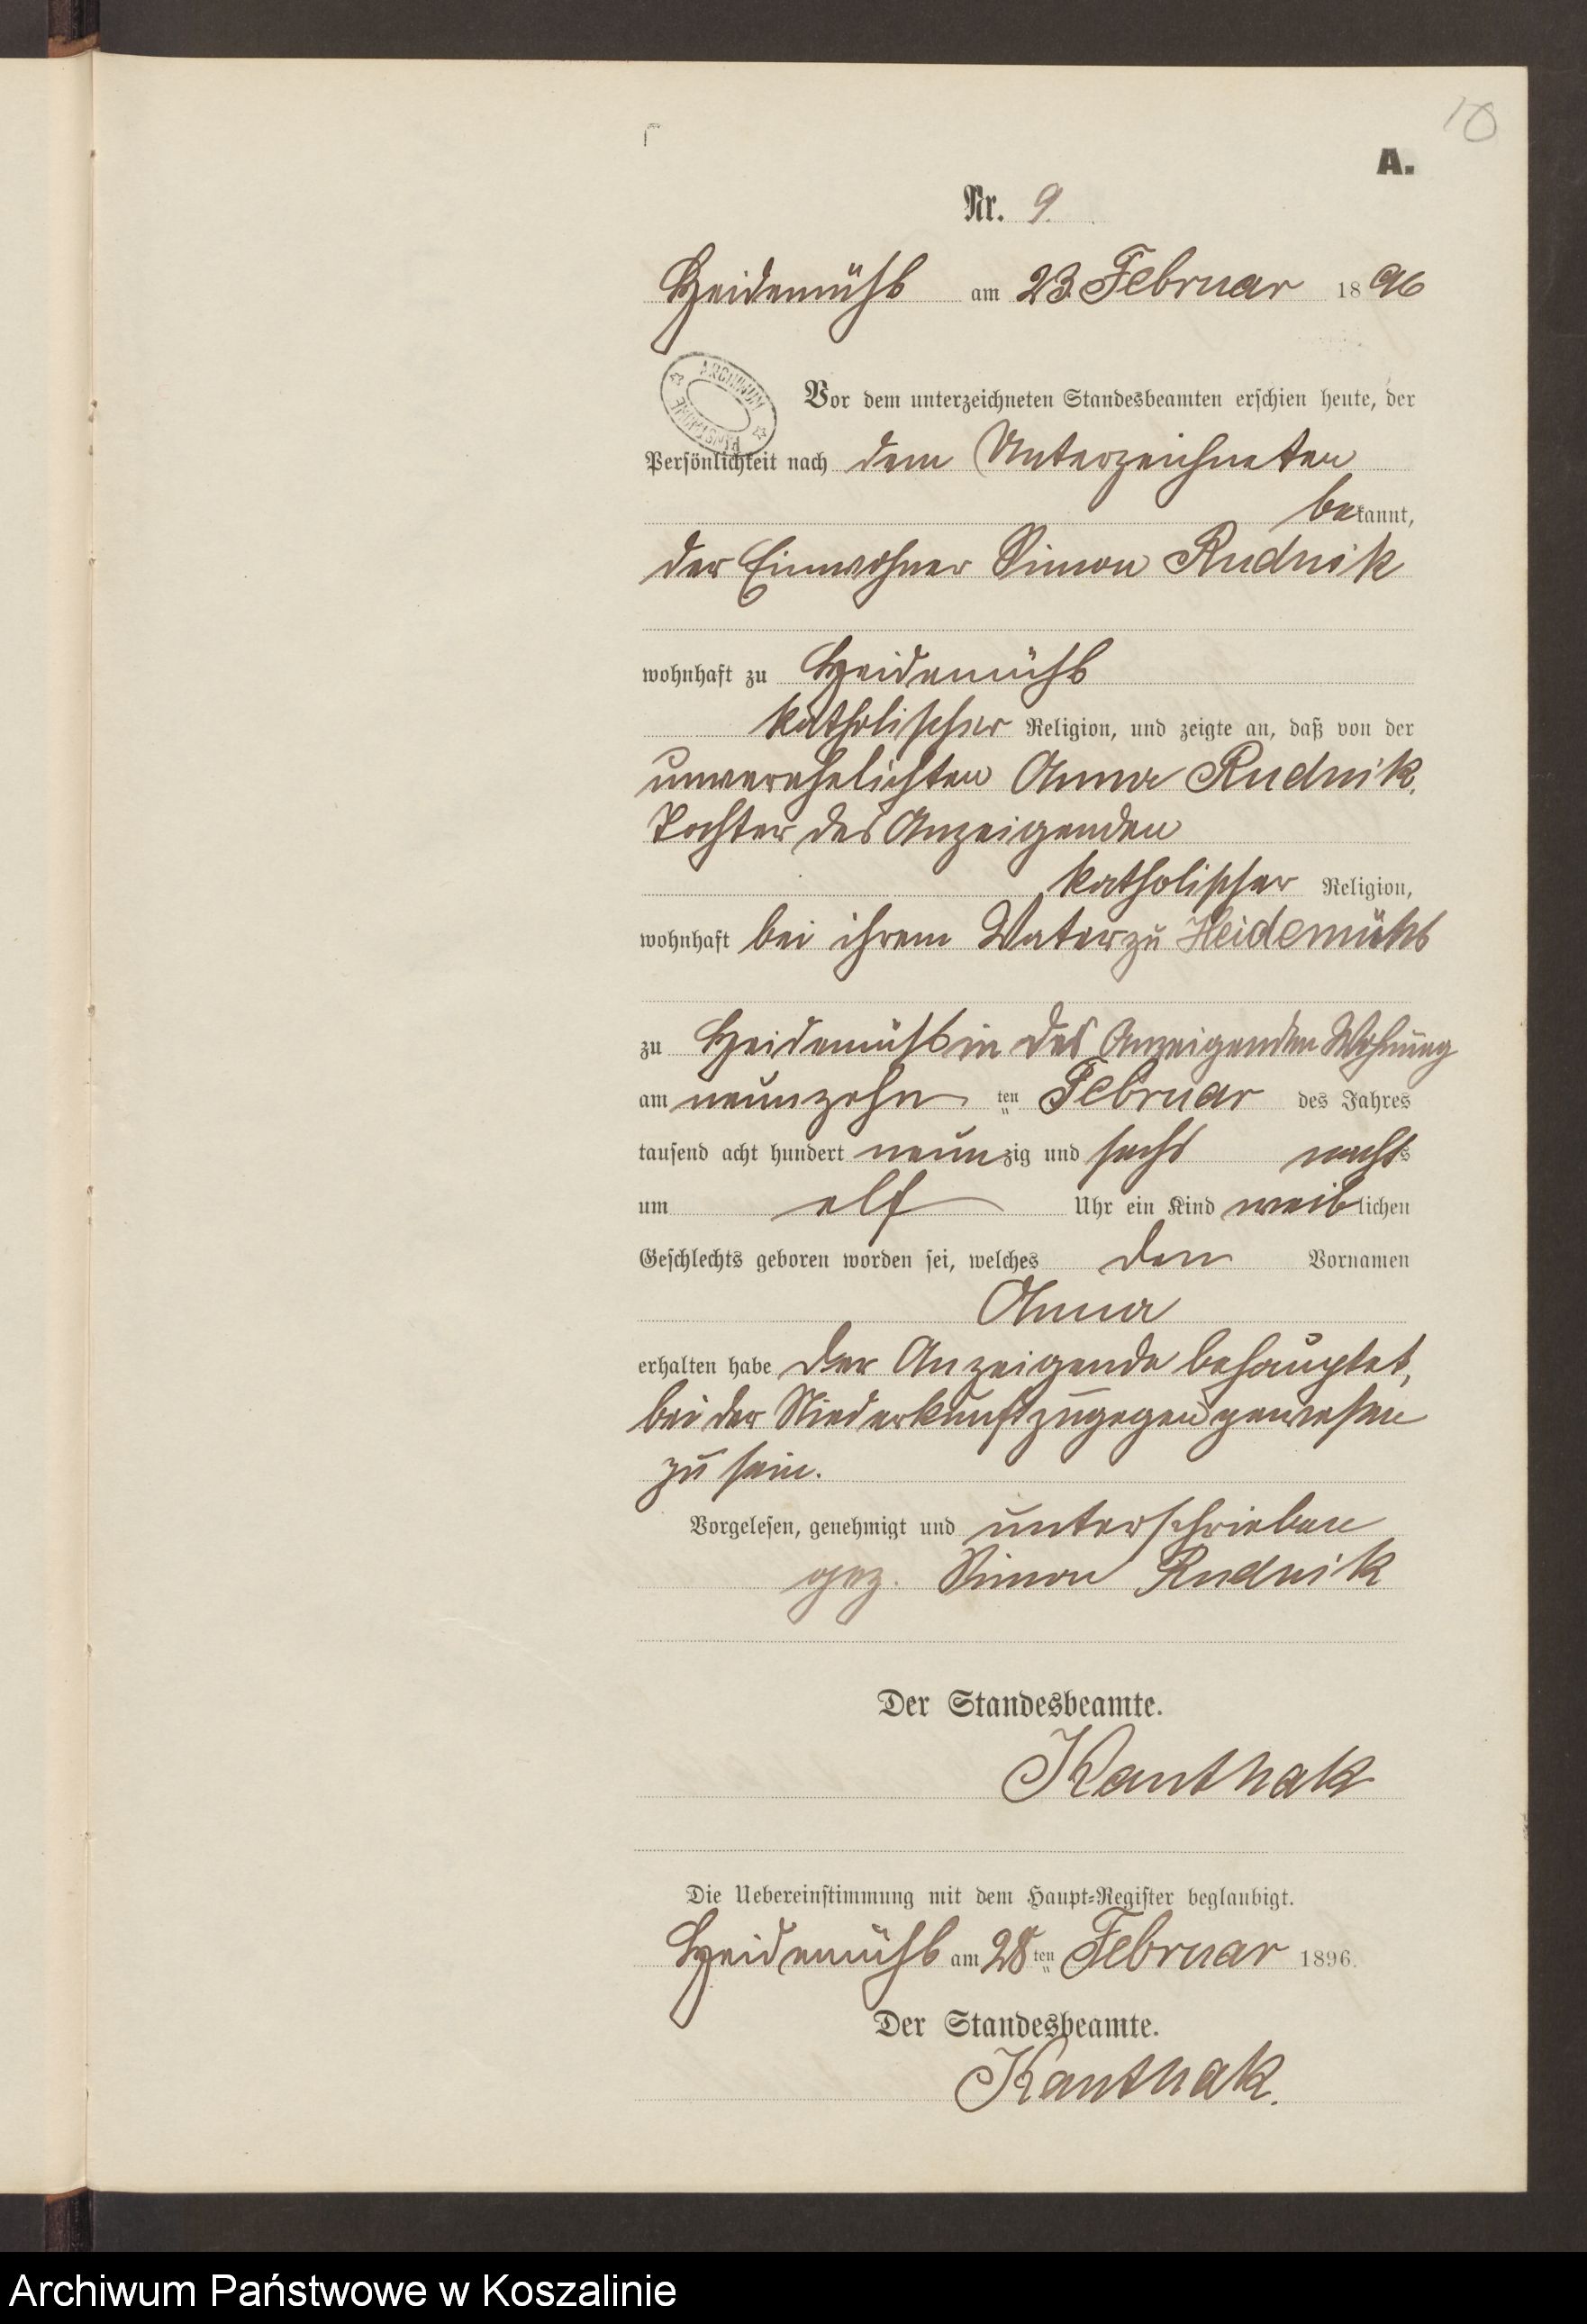 10
A.
Nr. 9.
Heidemühl am 23. Februar 1896
ARCHIWUM PAŃSTWOWE
Vor dem unterzeichneten Standesbeamten erschien heute, der
Persönlichkeit nach dem Unterzeichneten
bekannt,
der Einwohner Simon Rudnik
wohnhaft zu Heidemühl
katholischer Religion, und zeigte an, daß von der
unverehelichten Anna Rudnik,
Tochter des Anzeigenden
katholischer Religion,
wohnhaft bei ihrem Vater zu Heidemühl
zu Heidemühl in des Anzeigenden Wohnung
am neunzehn ten Februar des Jahres
tausend acht hundert neunzig und sechs nachts
um elf Uhr ein Kind weiblichen
Geschlechts geboren worden sei, welches den Vornamen
Anna
erhalten habe Der Anzeigende behauptet,
bei der Niederkunft zugegen gewesen
zu sein.
Vorgelesen, genehmigt und unterschrieben
gez. Simon Rudnik
Der Standesbeamte.
Kanthak
Die Uebereinstimmung mit dem Haupt-Register beglaubigt.
Heidemühl am 28ten Februar 1896.
Der Standesbeamte.
Kanthak.
Archiwum Państwowe w Koszalinie